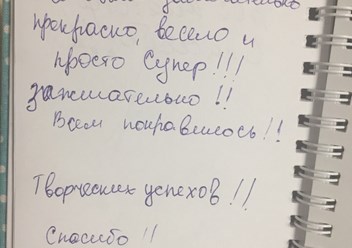 прекрасно, весело и
просто Супер!!!
зажигательно!!
Всем понравилось!!
Творческих успехов!!
Спасибо!!